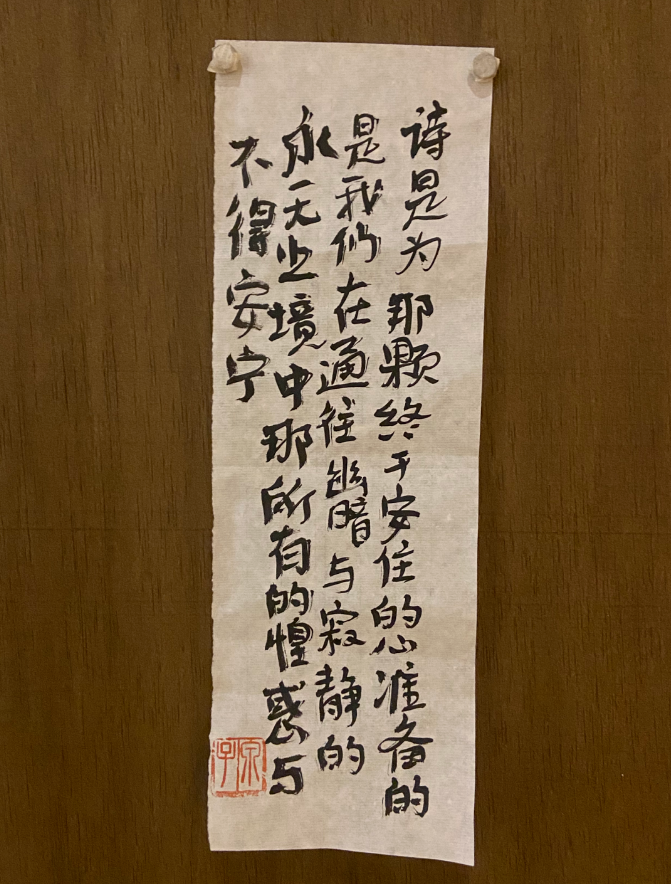 诗是为那颗终于安住的心准备的
是我们在通往幽暗与寂静的
永无止境中那所有的惶惑与
不得安宁